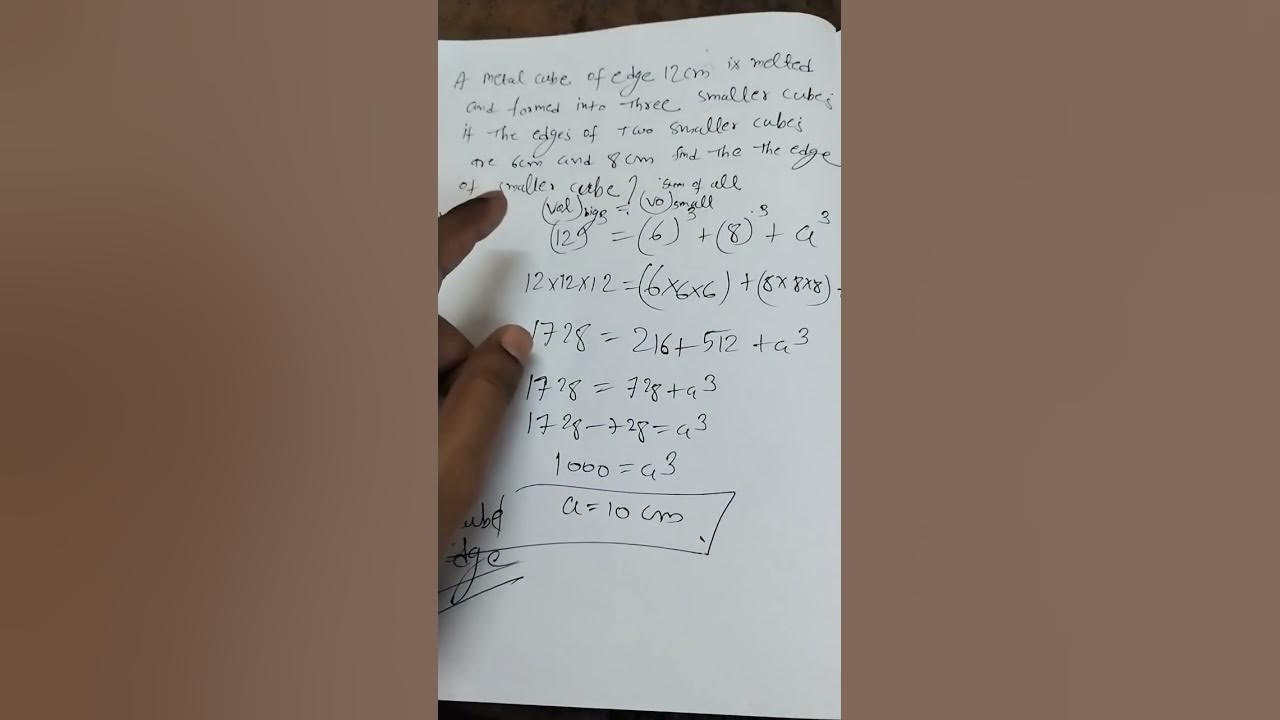 A metal cube of edge 12cm is melted
and formed into three smaller cubes
if the edges of two smaller cubes
are 6cm and 8cm find the the edge
of smaller cube? sum of all
(vol)bigg = (vo)small
(12)³ = (6)³ + (8)³ + a³
12×12×12 = (6×6×6) + (8×8×8) +
1728 = 216 + 512 + a³
1728 = 728 + a³
1728 - 728 = a³
1000 = a³
a = 10 cm
cube
edge